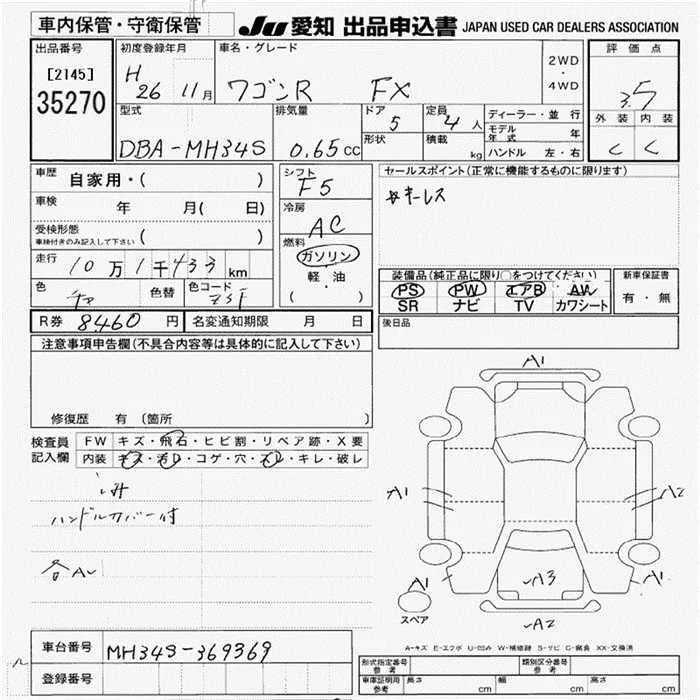 車内保管・守衛保管
JU 愛知 出品申込書 JAPAN USED CAR DEALERS ASSOCIATION
出品番号
[2145]
35270
初度登録年月
H 26 11月
車名・グレード
ワゴンR FX
2WD
・
4WD
評価点
3.5
外装 内装
C C
型式
DBA-MH34S
排気量
0.65cc
ドア
5
形状
定員
4人
積載
kg
ディーラー・並行
モデル年式 年
ハンドル 左・右
車歴 自家用・( )
車検 年 月( 日)
受検形態
車検付きのみ記入して下さい ( )
走行 10万1千433km
色
色替
色コード
シフト
F5
冷房
AC
燃料
ガソリン
軽・油
( )
セールスポイント(正常に機能するものに限ります)
☆キーレス
装備品(純正品に限り○をつけてください)
PS PW エアB AW
SR ナビ TV カワシート
新車保証書
有・無
R券 8460円
名変通知期限 月 日
後日品
注意事項申告欄(不具合内容等は具体的に記入して下さい)
修復歴 有 〔箇所 〕
検査員
記入欄
FW キズ・飛石・ヒビ割・リペア跡・X要
内装 キズ・汚レ・コゲ・穴・スレ・キレ・破レ
ハンドルカバー付
各A
A1
A1 A2
A1 A3 A1
スペア
A2
A-キズ E-エクボ U-凹み W-補修跡 S-サビ C-腐食 XX-交換済
車台番号 MH34S-369369
登録番号
型式指定番号
参考
類別区分番号
参考
車庫証明用
参考
長さ cm 幅 cm 高さ cm